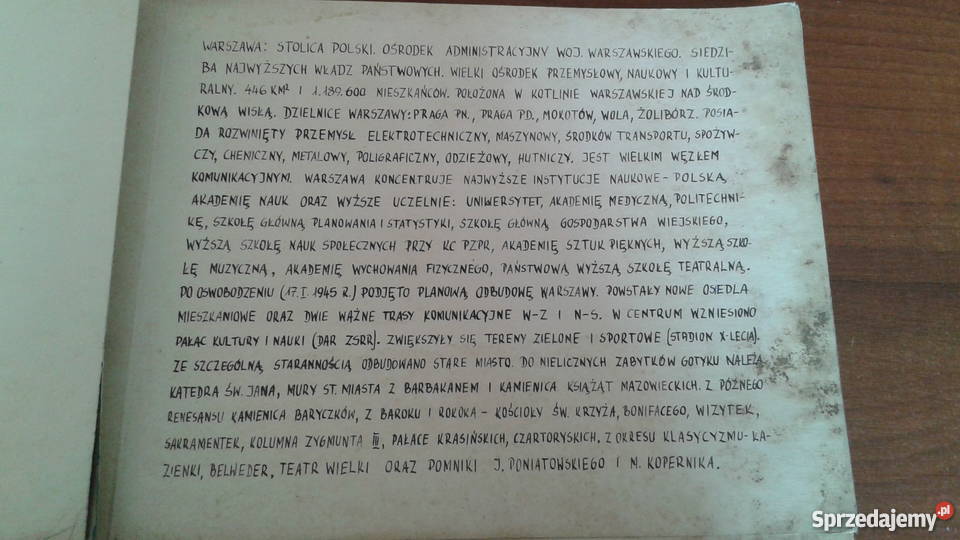 WARSZAWA: STOLICA POLSKI. OŚRODEK ADMINISTRACYJNY WOJ. WARSZAWSKIEGO. SIEDZI-
BA NAJWYŻSZYCH WŁADZ PAŃSTWOWYCH. WIELKI OŚRODEK PRZEMYSŁOWY, NAUKOWY I KULTU-
RALNY. 446 KM² I 1.189.600 MIESZKAŃCÓW. POŁOŻONA W KOTLINIE WARSZAWSKIEJ NAD ŚROD-
KOWĄ WISŁĄ. DZIELNICE WARSZAWY: PRAGA PN., PRAGA PD., MOKOTÓW, WOLA, ŻOLIBÓRZ. POSIA-
DA ROZWINIĘTY PRZEMYSŁ ELEKTROTECHNICZNY, MASZYNOWY, ŚRODKÓW TRANSPORTU, SPOŻYW-
CZY, CHENICZNY, METALOWY, POLIGRAFICZNY, ODZIEŻOWY, HUTNICZY. JEST WIELKIM WĘZŁEM
KOMUNIKACYJNYM. WARSZAWA KONCENTRUJE NAJWYŻSZE INSTYTUCJE NAUKOWE - POLSKĄ
AKADEMIĘ NAUK ORAZ WYŻSZE UCZELNIE: UNIWERSYTET, AKADEMIĘ MEDYCZNĄ, POLITECHNI-
KĘ, SZKOŁĘ GŁÓWNĄ PLANOWANIA I STATYSTYKI, SZKOŁĘ GŁÓWNĄ GOSPODARSTWA WIEJSKIEGO,
WYŻSZĄ SZKOŁĘ NAUK SPOŁECZNYCH PRZY KC PZPR, AKADEMIĘ SZTUK PIĘKNYCH, WYŻSZĄ SZKO-
ŁĘ MUZYCZNĄ, AKADEMIĘ WYCHOWANIA FIZYCZNEGO, PAŃSTWOWĄ WYŻSZĄ SZKOŁĘ TEATRALNĄ.
PO OSWOBODZENIU (17.I.1945 R.) PODJĘTO PLANOWĄ ODBUDOWĘ WARSZAWY. POWSTAŁY NOWE OSIEDLA
MIESZKANIOWE ORAZ DWIE WAŻNE TRASY KOMUNIKACYJNE W-Z I N-S. W CENTRUM WZNIESIONO
PAŁAC KULTURY I NAUKI (DAR ZSRR). ZWIĘKSZYŁY SIĘ TERENY ZIELONE I SPORTOWE (STADION X-LECIA).
ZE SZCZEGÓLNĄ STARANNOŚCIĄ ODBUDOWANO STARE MIASTO. DO NIELICZNYCH ZABYTKÓW GOTYKU NALEŻĄ
KATEDRA ŚW. JANA, MURY ST. MIASTA Z BARBAKANEM I KAMIENICA KSIĄŻĄT MAZOWIECKICH. Z PÓŹNEGO
RENESANSU KAMIENICA BARYCZKÓW, Z BAROKU I ROKOKA - KOŚCIOŁY ŚW. KRZYŻA, BONIFACEGO, WIZYTEK,
SAKRAMENTEK, KOLUMNA ZYGMUNTA III, PAŁACE KRASIŃSKICH, CZARTORYSKICH. Z OKRESU KLASYCYZMU-ŁA-
ZIENKI, BELWEDER, TEATR WIELKI ORAZ POMNIKI J. PONIATOWSKIEGO I M. KOPERNIKA.
Sprzedajemy.pl